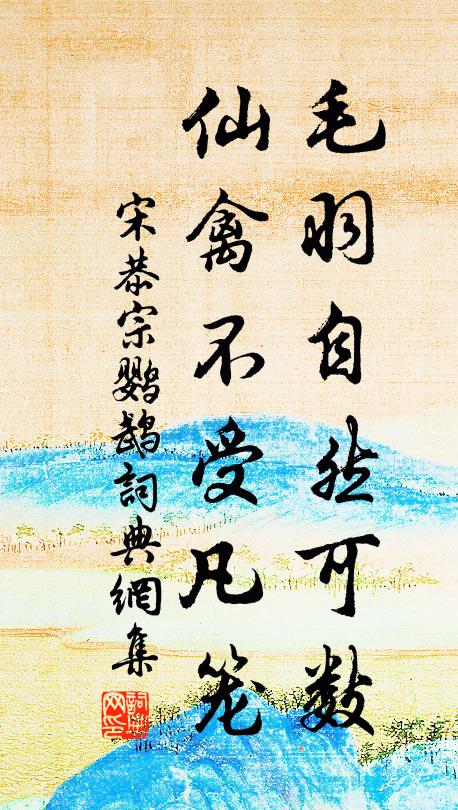 毛羽自然可数
仙禽不受凡笼
宋恭宗鹦鹉詞典網集